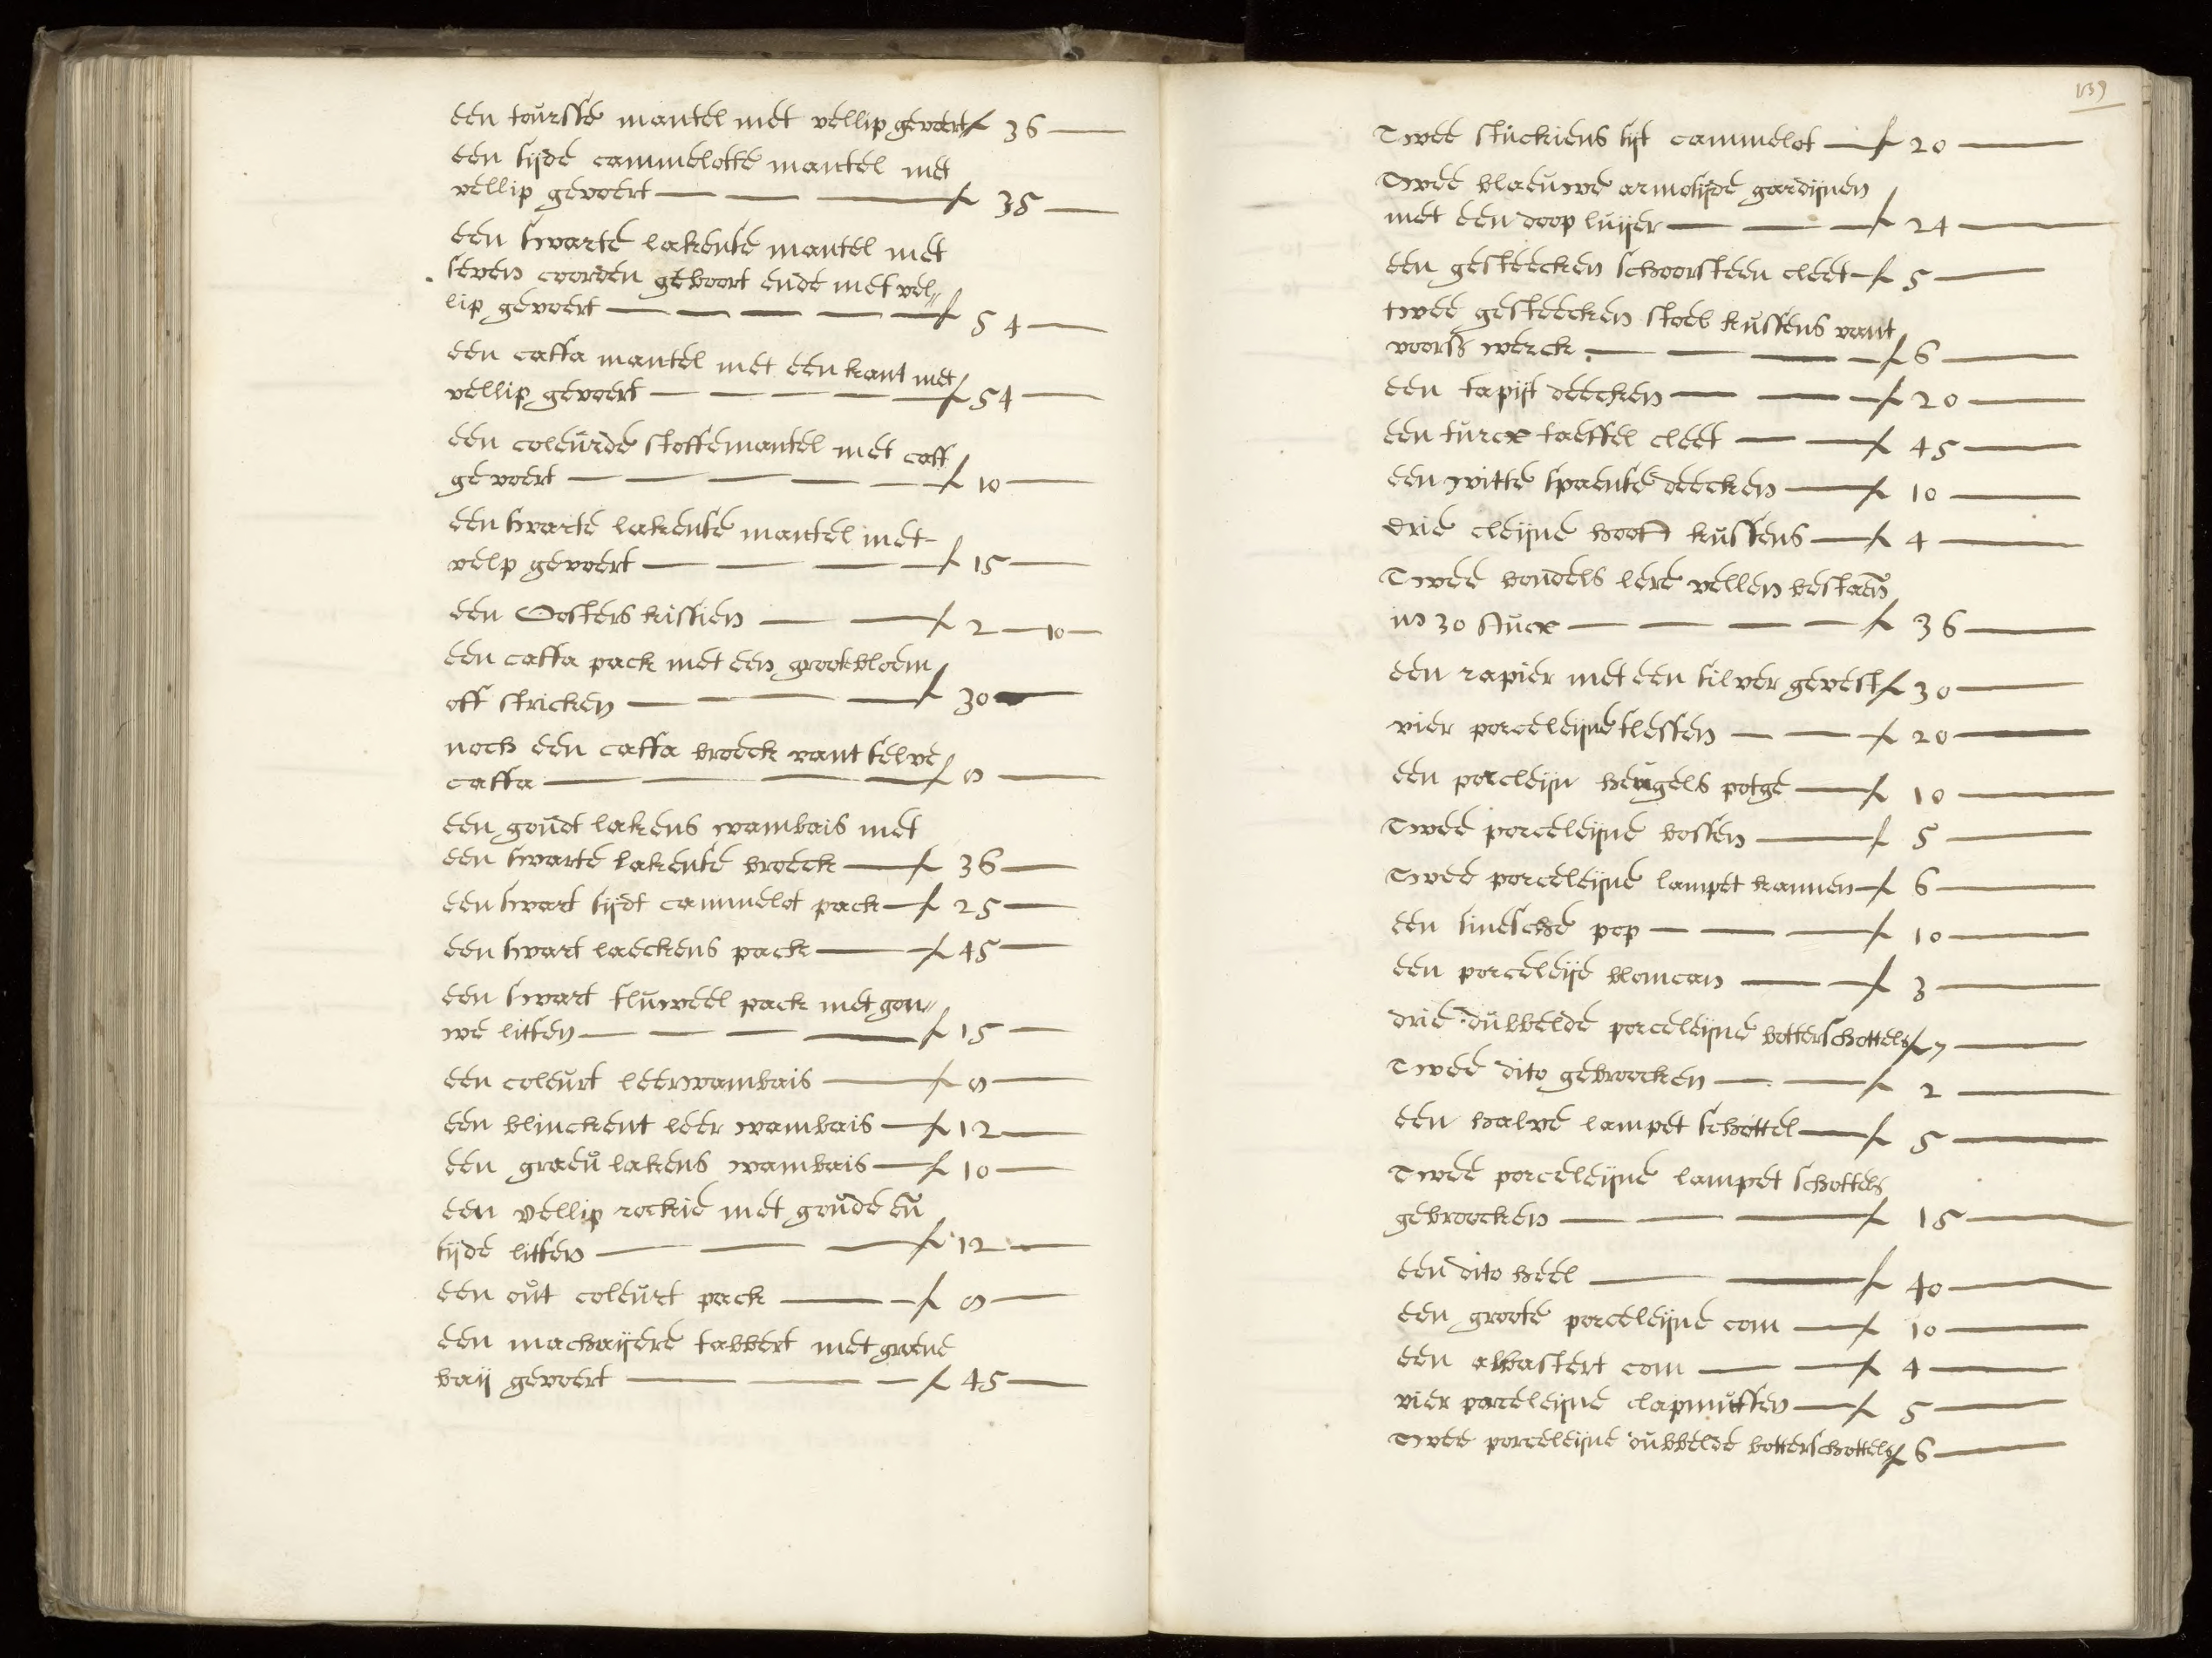 een toursse mantel met vellip gevoert f 36
een sijde cammelotte mantel met
vellip gevoert f 35
een swarte lakense mantel met
seven coorden geboort ende met vel„
lip gevoert f 54
een caffa mantel met een kant met
vellip gevoert f 54
een coleurde stoffe mantel met caff
gevoert f 10
een swarte lakense mantel met
velp gevoert f 15
een Oosters kissien f 2 10
een caffa pack met een groote bloem
off stricken f 30
noch een caffa broeck vant selve
caffa f 8
een goudt lakens wambais met
een swarte lakense broeck f 36
een swart sijdt cammelot pack f 25
een swart laeckens pack f 45
een swart fluweel pack met gou„
we litsen f 15
een coleurt leer wambais f 8
een blinckent leer wambais f 12
een graeu lakens wambais f 10
een vellip rockie met goude en
sijde litsen f 12
een out coleurt pack f 8
een machaijere tabbert met groene
baij gevoert f 45
139
Twee stuckiens sijt cammelot f 20
Twee blaeuwe armosijde gardijnen
met een doop luijer f 24
een gesteecken schoorsteen cleet f 5
twee gesteecken stoel kussens vant
voorss werck f 6
een tapijt deecken f 20
een turcx taeffel cleet f 45
een witte spaense deecken f 10
drie cleijne hooft kussens f 4
Twee bondels lere vellen bestaen
in 30 stucx f 36
een rapier met een silver gevest f 30
vier porceleijne flessen f 20
een porcleijn heugels potge f 10
Twee porceleijne bossen f 5
Twee porceleijne lampet kannen f 6
een sinesche pop f 10
een porceleije blomcan f 3
drie dubbelde porceleijne botterschottels f 7
Twee dito gebroocken f 2
een halve lampet schottel f 5
Twee porceleijne lampet schottels
gebroocken f 15
een dito heel f 40
een groote porceleijne com f 10
een albastert com f 4
vier porceleijne clapmutsen f 5
Twee porceleijne dubbelde botterschottels f 6